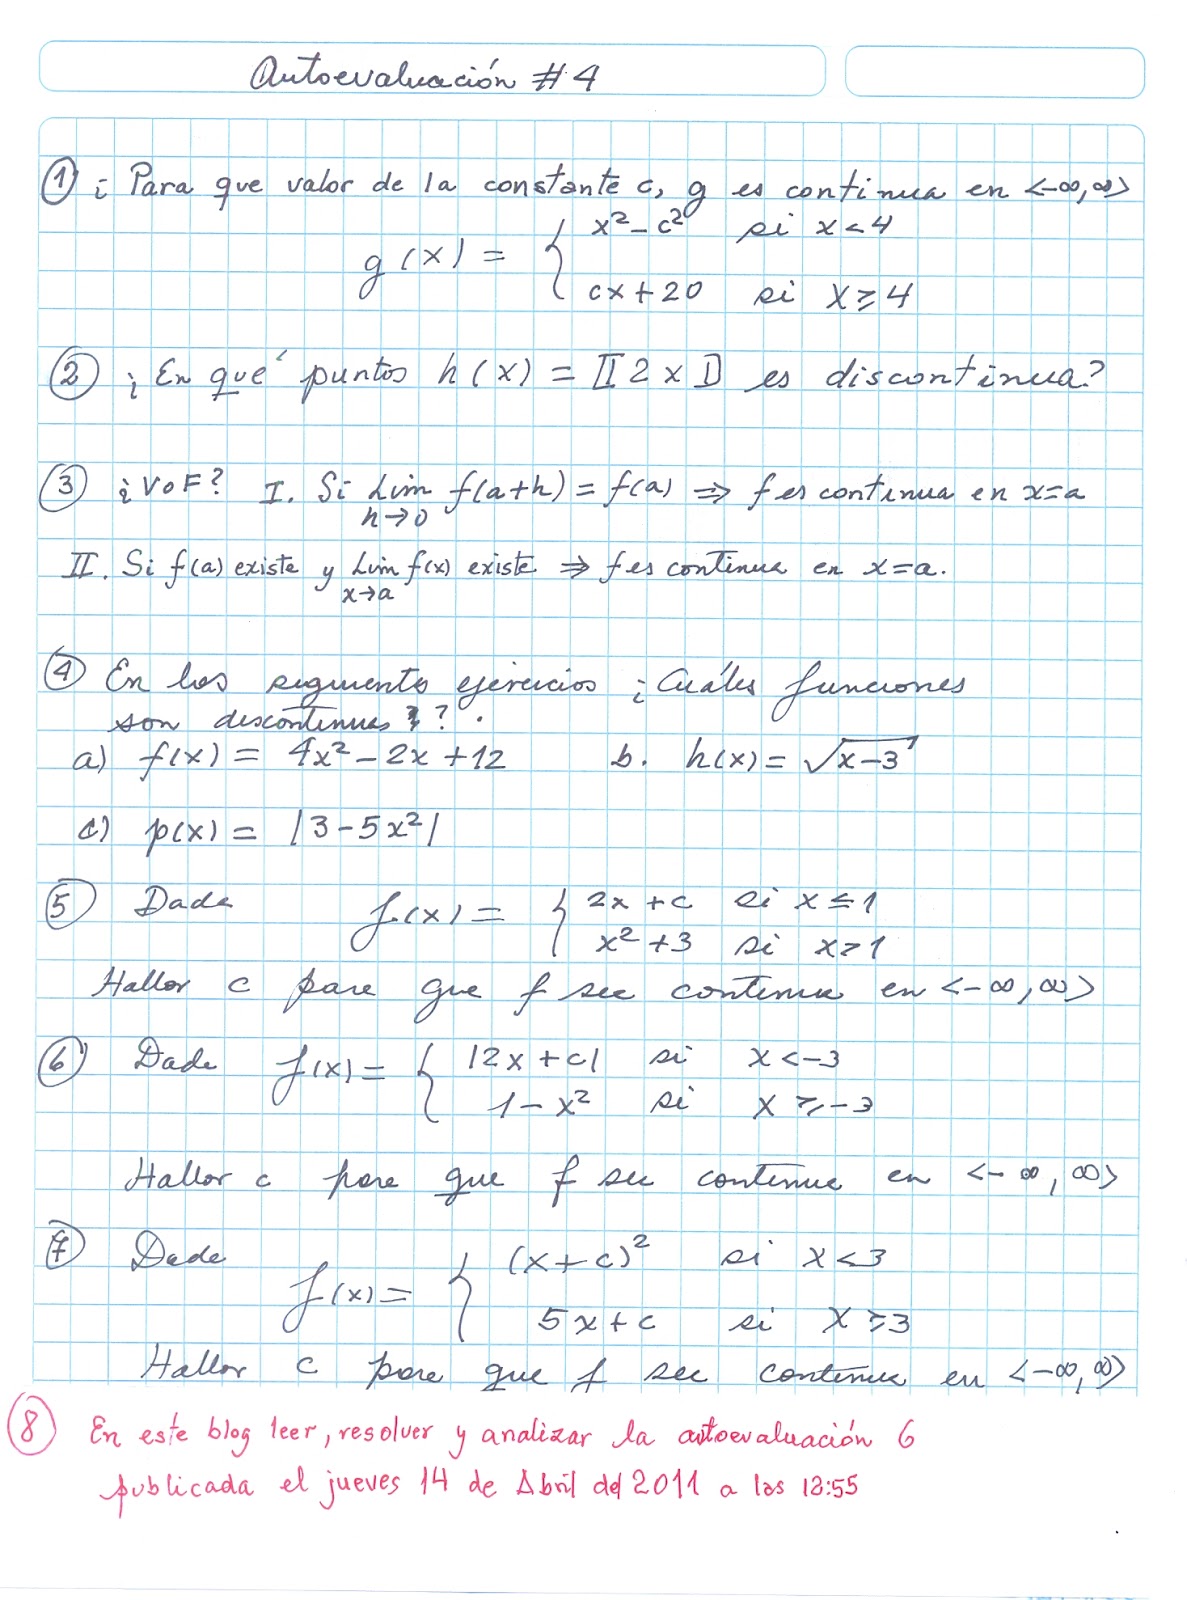 Autoevaluación # 4
① ¿ Para que valor de la constante c, g es continua en <-∞,∞>
g(x) = { x² - c² si x < 4
cx + 20 si x ≥ 4
② ¿ En qué puntos h(x) = [[2x]] es discontinua?
③ ¿V o F? I. Si Lim f(a+h) = f(a) ⇒ f es continua en x=a
h→0
II. Si f(a) existe y Lim f(x) existe ⇒ f es continua en x=a.
x→a
④ En los siguientes ejercicios ¿Cuáles funciones
son discontinuas ? .
a) f(x) = 4x² - 2x + 12 b. h(x) = √x-3
c) p(x) = |3 - 5x²|
⑤ Dada f(x) = { 2x + c si x ≤ 1
x² + 3 si x > 1
Hallar c para que f sea continua en <-∞,∞>
⑥ Dada f(x) = { |2x + c| si x < -3
1 - x² si x ≥ -3
Hallar c para que f sea continua en <-∞,∞>
⑦ Dada
f(x) = { (x+c)² si x < 3
5x + c si x ≥ 3
Hallar c para que f sea continua en <-∞,∞>
⑧ En este blog leer, resolver y analizar la autoevaluación 6
publicada el jueves 14 de Abril del 2011 a las 12:55